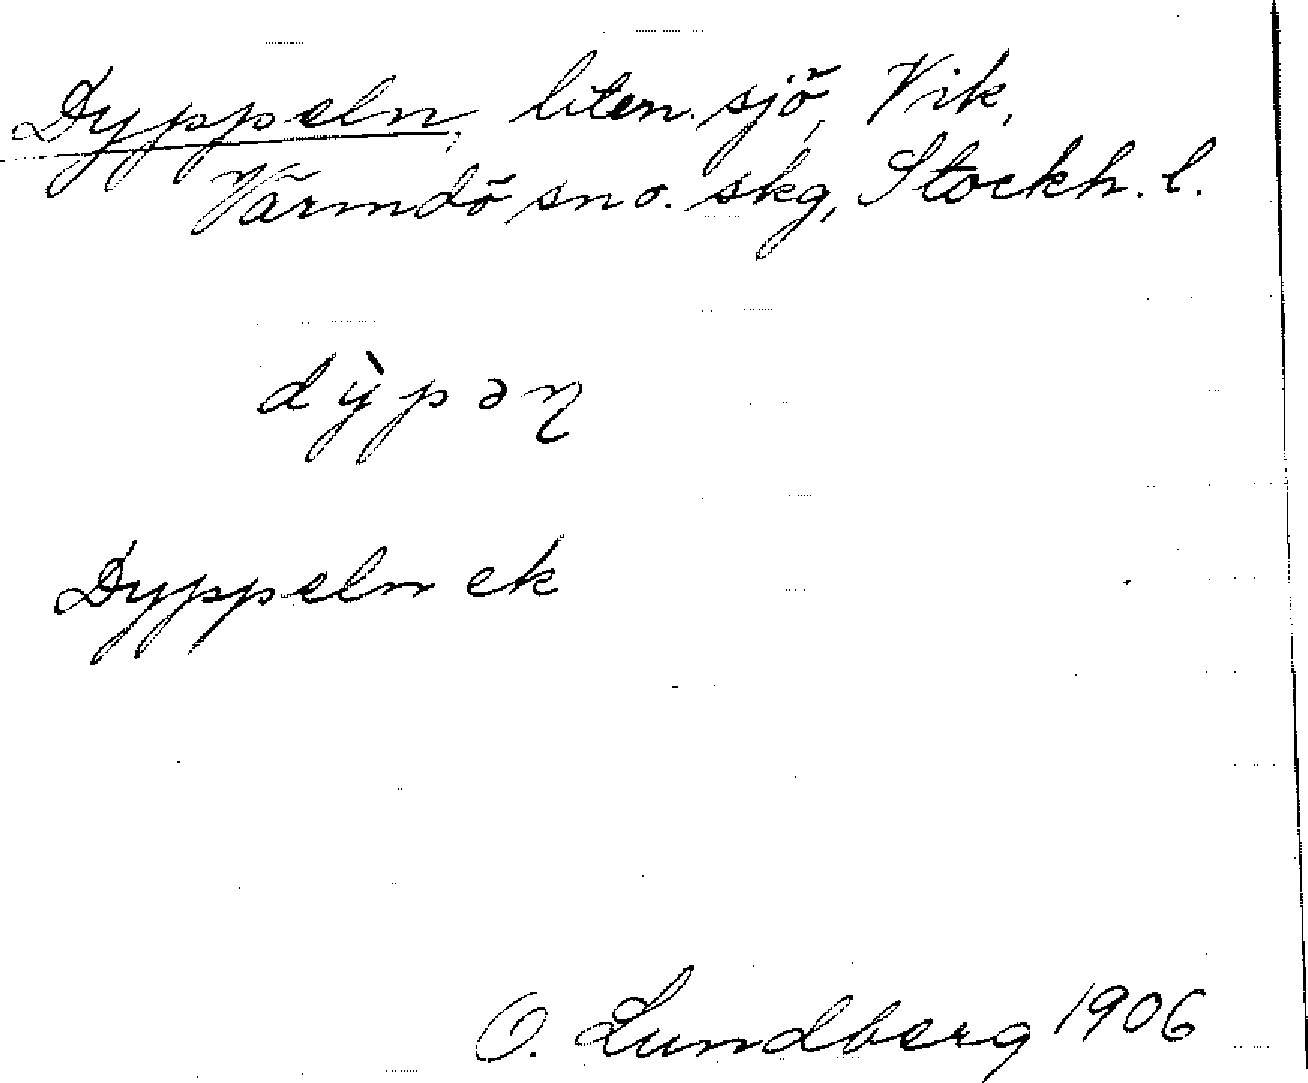 Dyppeln, liten sjö, Vik,
Värmdö sn o. skg, Stockh. l.
dỳpəɳ
Dyppeln ek
O. Lundberg 1906